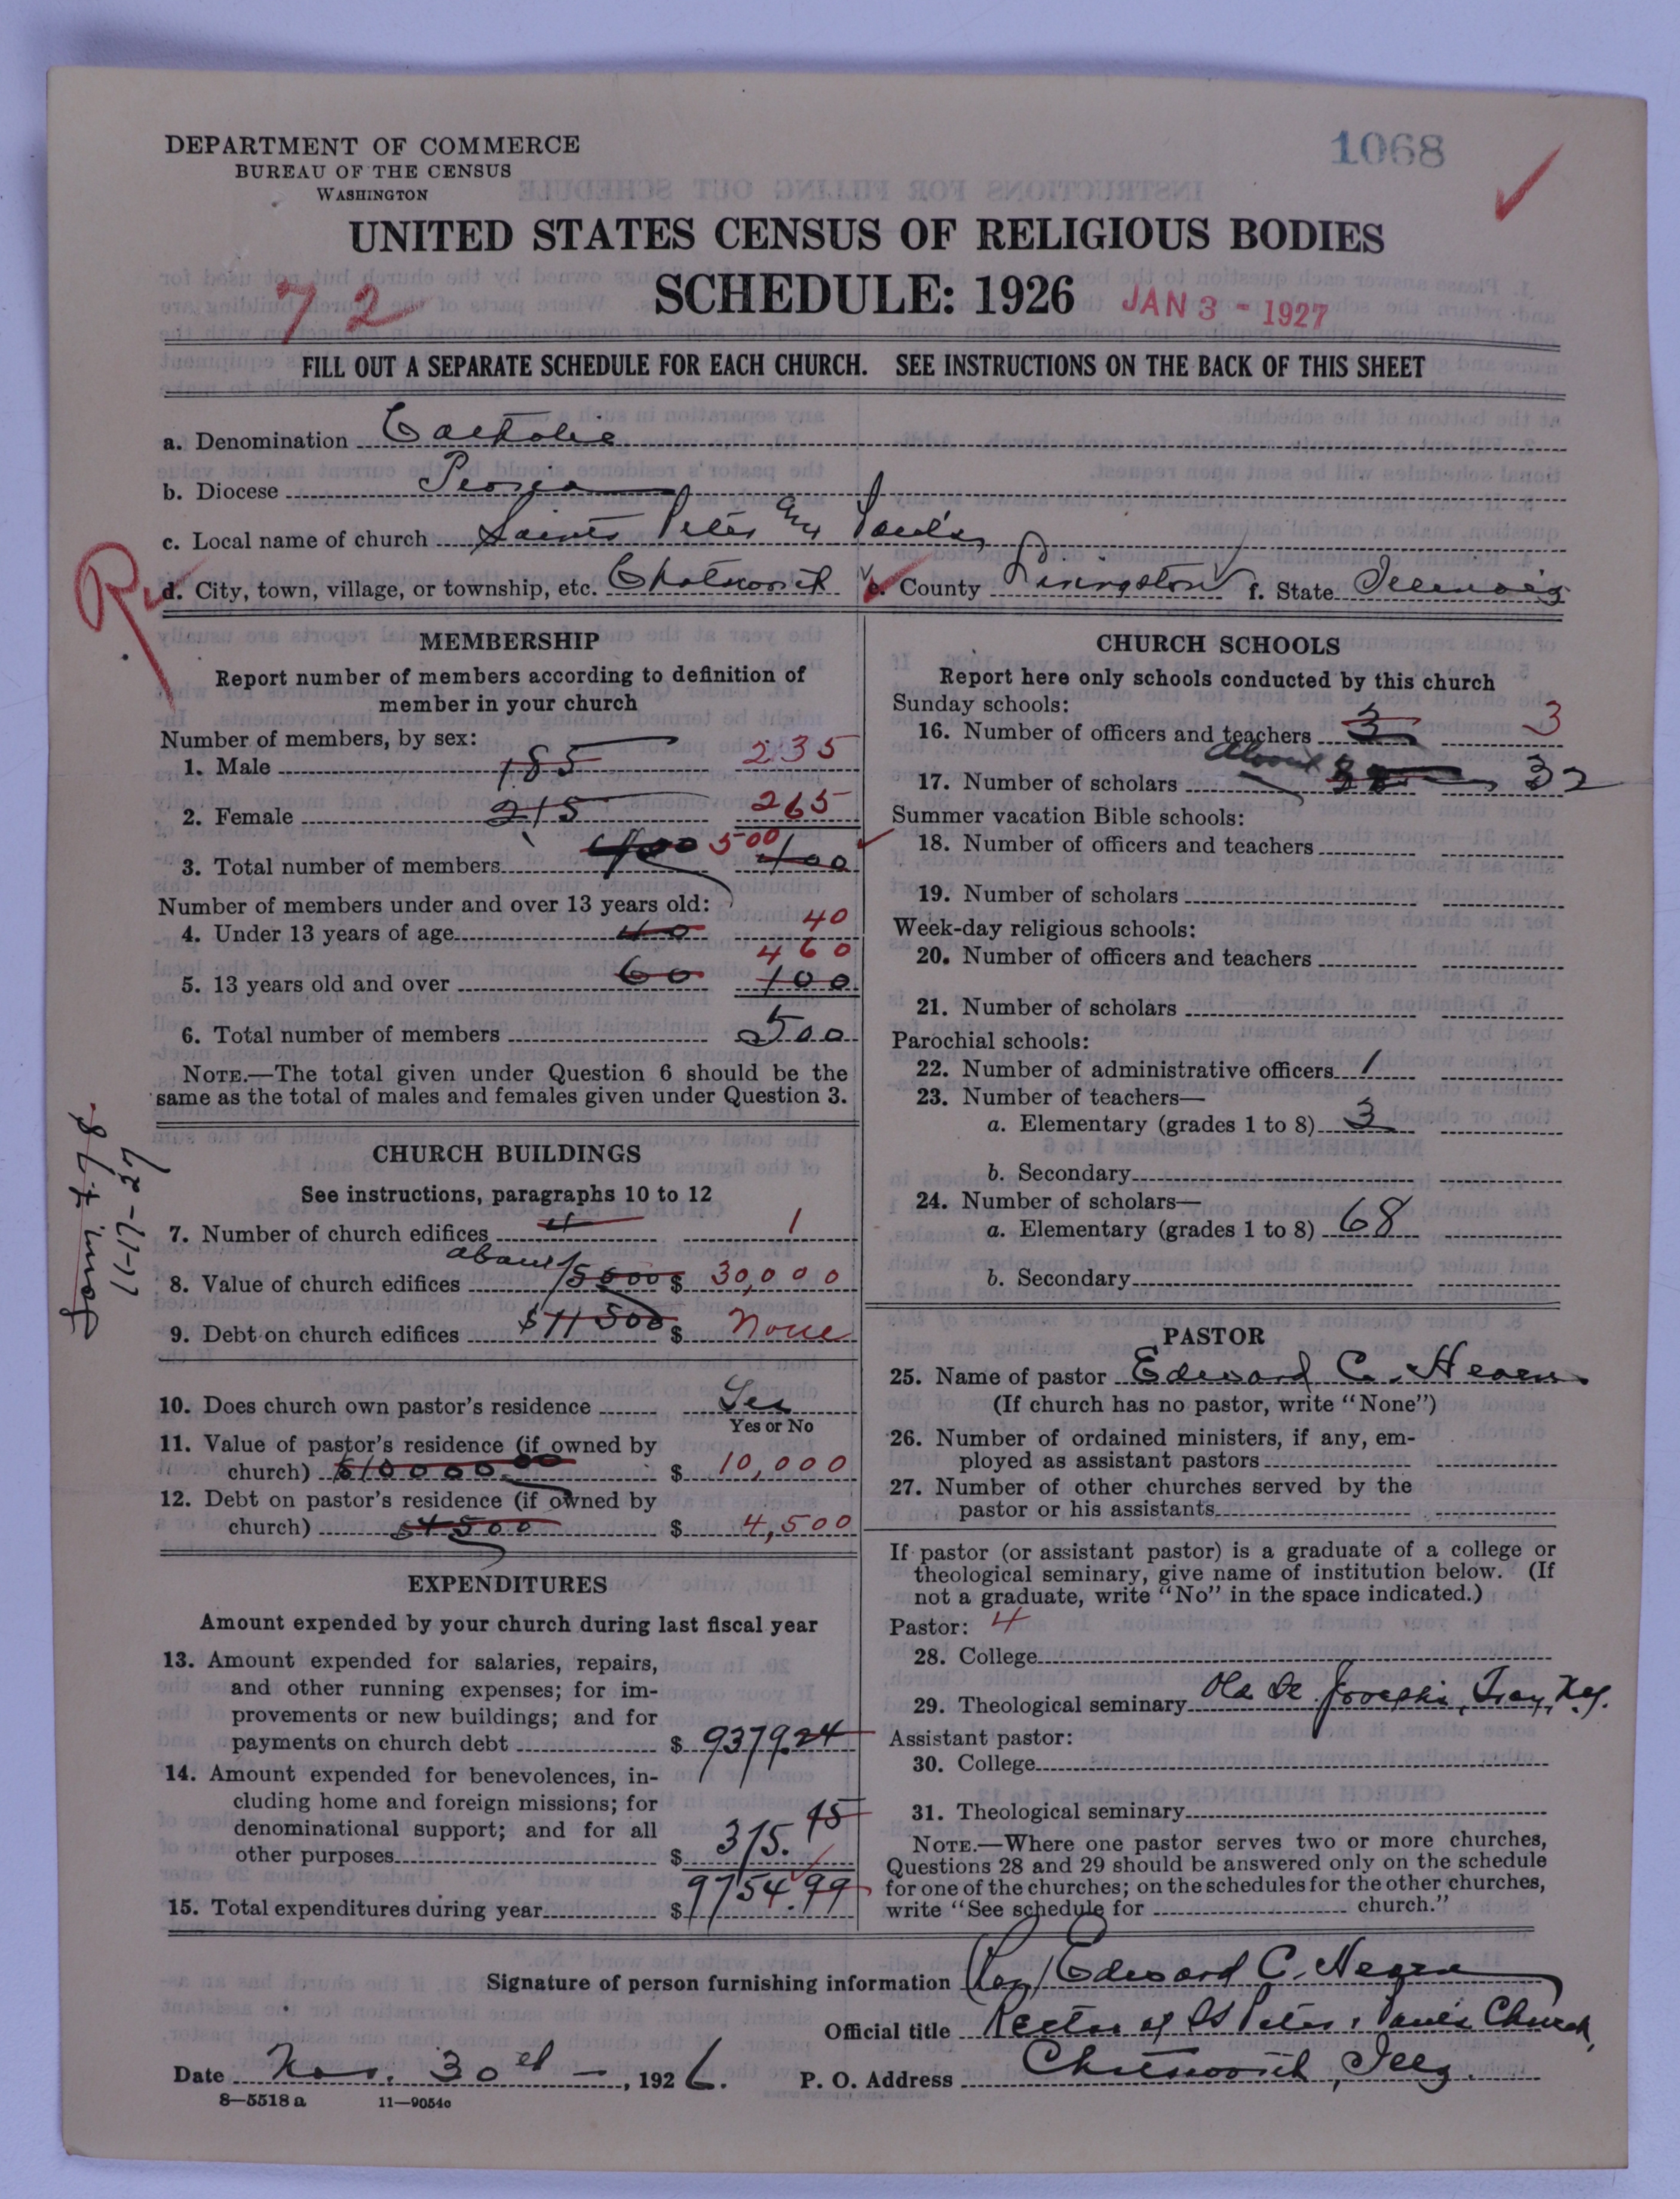 DEPARTMENT OF COMMERCE
BUREAU OF THE CENSUS
WASHINGTON
1068
UNITED STATES CENSUS OF RELIGIOUS BODIES
SCHEDULE: 1926
JAN 3 - 1927
72
FILL OUT A SEPARATE SCHEDULE FOR EACH CHURCH. SEE INSTRUCTIONS ON THE BACK OF THIS SHEET
a. Denomination Catholic
b. Diocese Peoria
c. Local name of church Saints Peter and Paul's
d. City, town, village, or township, etc. Chatsworth e. County Livingston f. State Illinois
MEMBERSHIP
Report number of members according to definition of
member in your church
Number of members, by sex:
1. Male 185 235
2. Female 215 265
3. Total number of members 400 500 400
Number of members under and over 13 years old:
4. Under 13 years of age 40 40
460
5. 13 years old and over 60 100
6. Total number of members 500
NOTE.—The total given under Question 6 should be the
same as the total of males and females given under Question 3.
CHURCH BUILDINGS
See instructions, paragraphs 10 to 12
7. Number of church edifices 4 1
about
8. Value of church edifices 15000 $ 30,000
9. Debt on church edifices $11500 $ None
10. Does church own pastor's residence Yes
Yes or No
11. Value of pastor's residence (if owned by
church) $10000.00 $ 10,000
12. Debt on pastor's residence (if owned by
church) $4500 $ 4,500
EXPENDITURES
Amount expended by your church during last fiscal year
13. Amount expended for salaries, repairs,
and other running expenses; for im-
provements or new buildings; and for
payments on church debt $ 9379.24
14. Amount expended for benevolences, in-
cluding home and foreign missions; for
denominational support; and for all
other purposes $ 315.45
15. Total expenditures during year $ 9754.99
CHURCH SCHOOLS
Report here only schools conducted by this church
Sunday schools:
16. Number of officers and teachers 3 3
about
17. Number of scholars 32
Summer vacation Bible schools:
18. Number of officers and teachers
19. Number of scholars
Week-day religious schools:
20. Number of officers and teachers
21. Number of scholars
Parochial schools:
22. Number of administrative officers 1
23. Number of teachers—
a. Elementary (grades 1 to 8) 3
b. Secondary
24. Number of scholars—
a. Elementary (grades 1 to 8) 68
b. Secondary
PASTOR
25. Name of pastor Edward C. Hearn
(If church has no pastor, write "None")
26. Number of ordained ministers, if any, em-
ployed as assistant pastors
27. Number of other churches served by the
pastor or his assistants
If pastor (or assistant pastor) is a graduate of a college or
theological seminary, give name of institution below. (If
not a graduate, write "No" in the space indicated.)
Pastor: 4
28. College
29. Theological seminary Old St. Joseph's, Troy, N.Y.
Assistant pastor:
30. College
31. Theological seminary
NOTE.—Where one pastor serves two or more churches,
Questions 28 and 29 should be answered only on the schedule
for one of the churches; on the schedules for the other churches,
write "See schedule for church."
Signature of person furnishing information Rev Edward C. Hearn
Official title Rector of SS Peter & Paul's Church,
Date Nov. 30th, 1926. P. O. Address Chatsworth, Illg.
8—5518 a 11—9054c